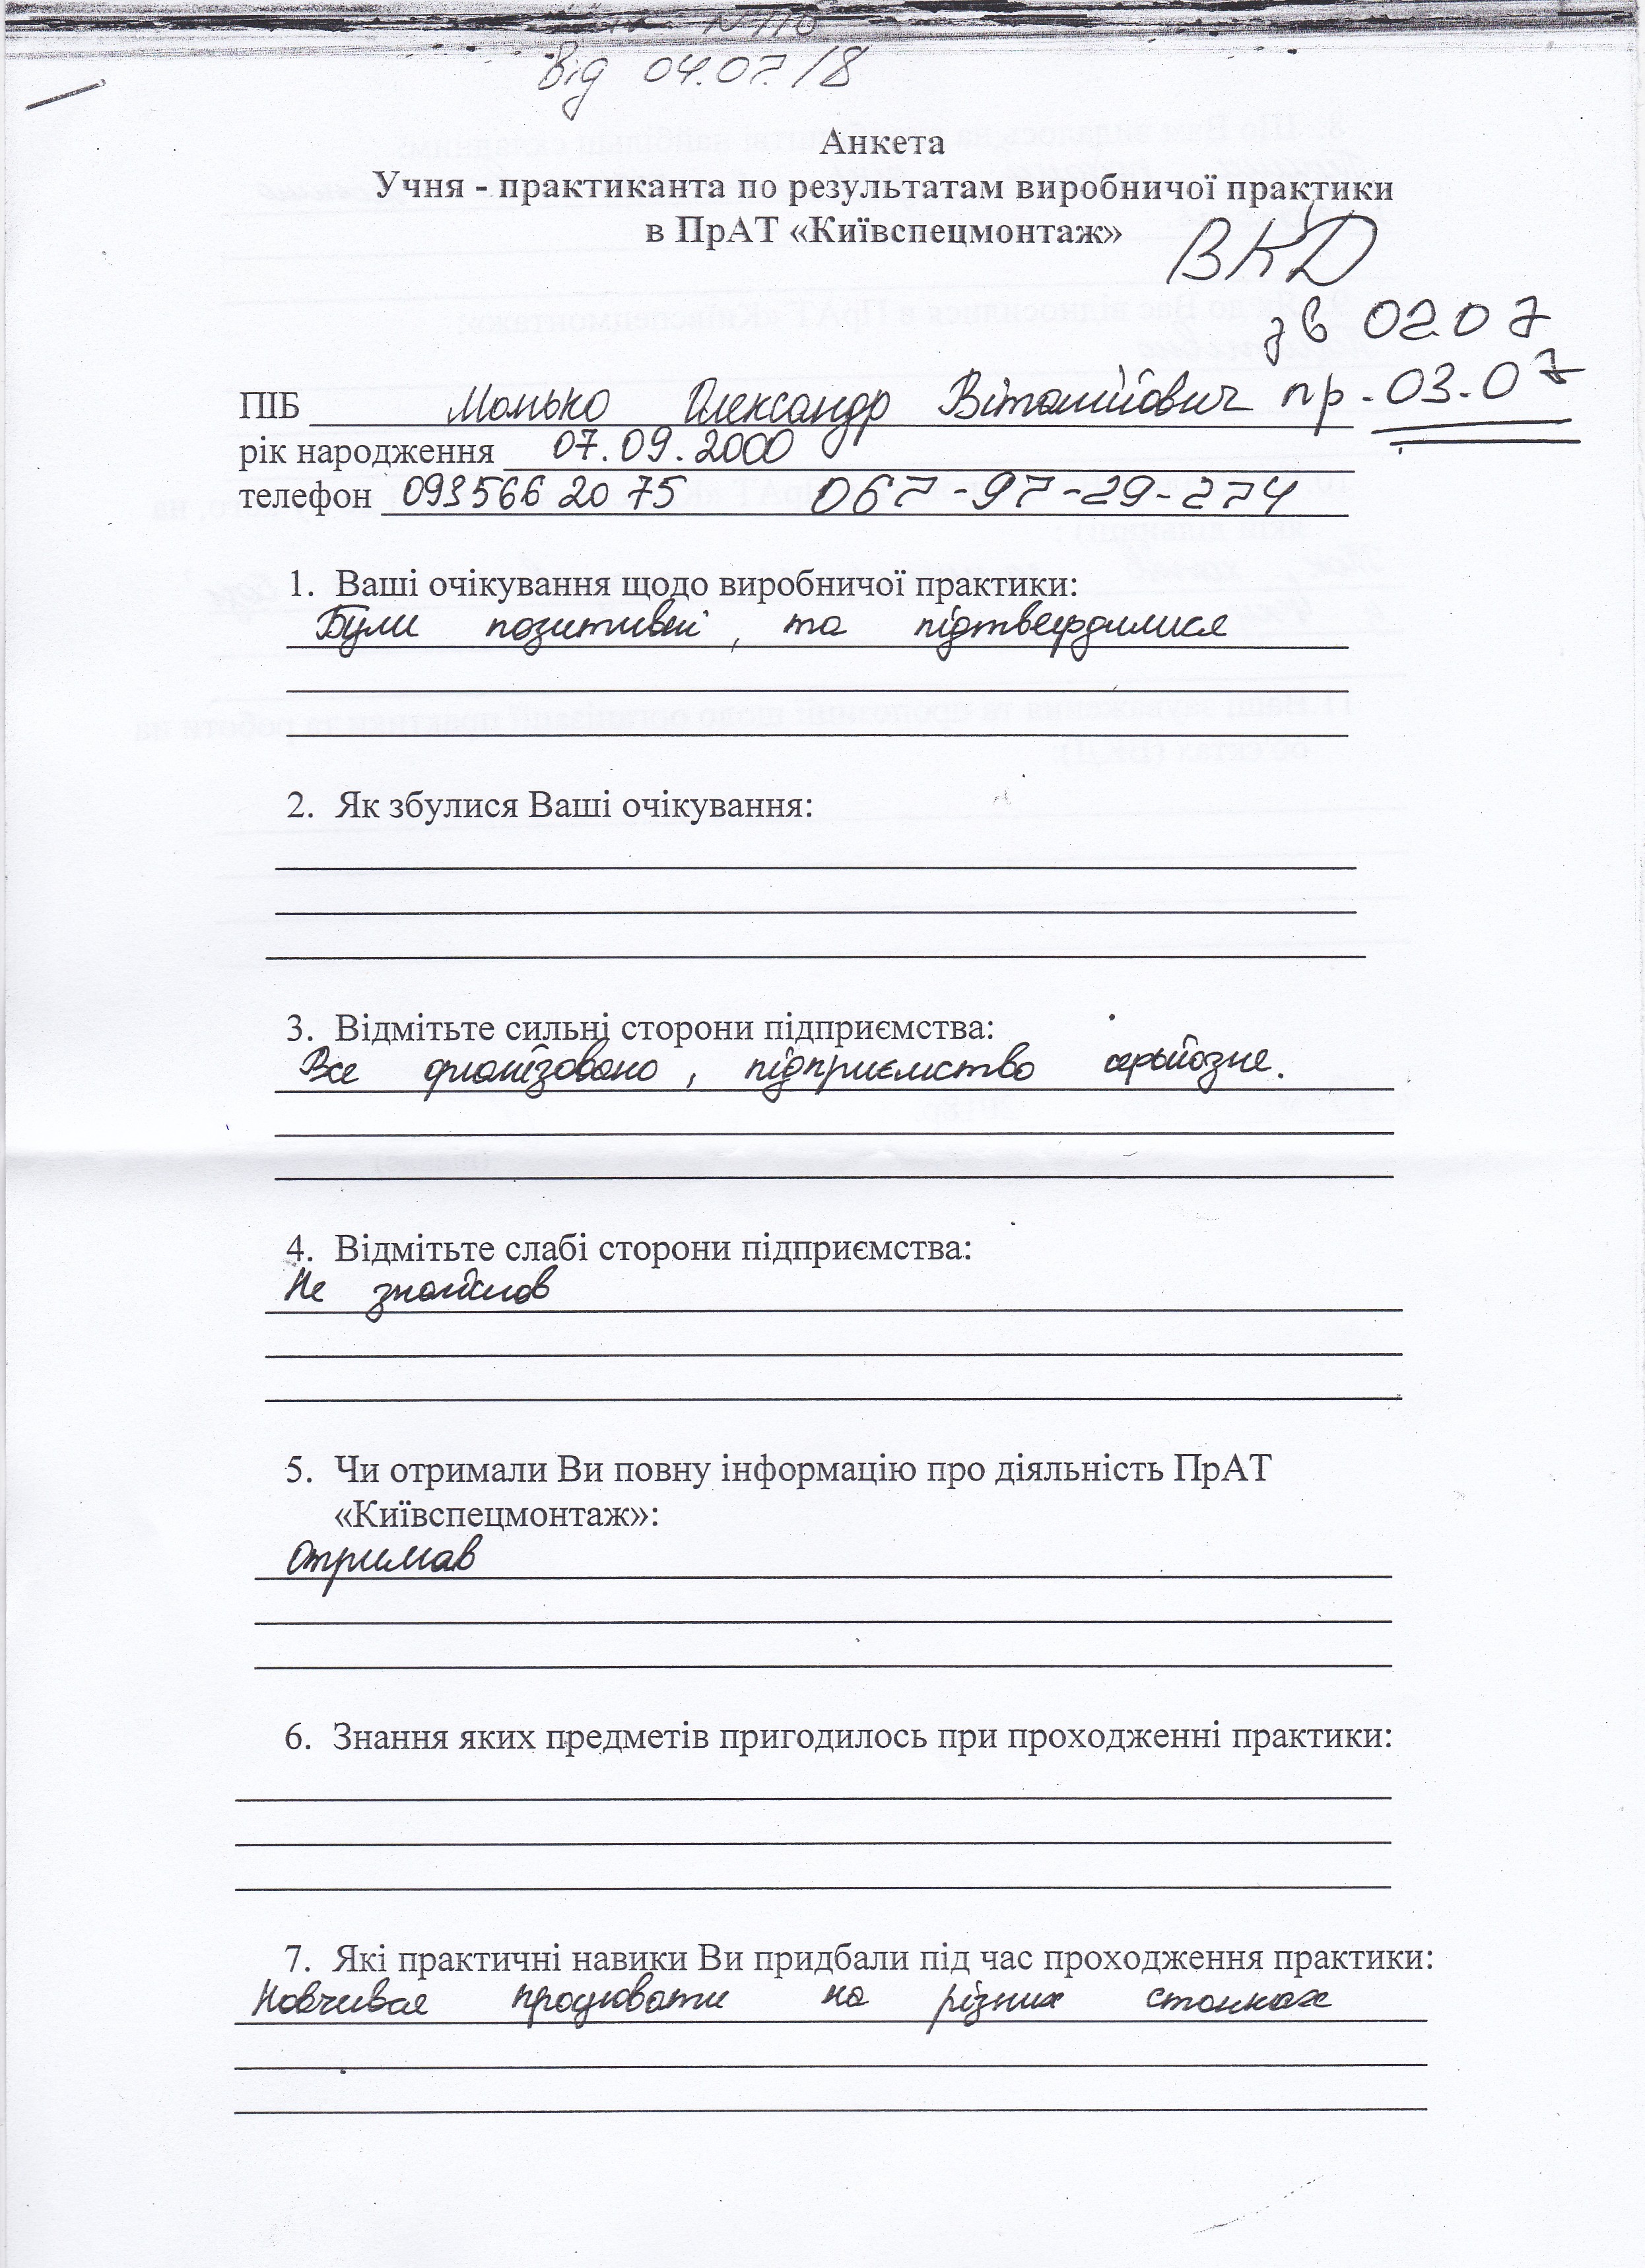 N110
Від 04.07.18
Анкета
Учня - практиканта по результатам виробничої практики
в ПрАТ «Київспецмонтаж»
ВКД
зв 02.07
ПІБ Монько Олександр Віталійович пр. 03.07
рік народження 07.09.2000
телефон 093 566 20 75 067-97-29-274
1. Ваші очікування щодо виробничої практики:
Були позитивні, та підтвердилися
2. Як збулися Ваші очікування:
3. Відмітьте сильні сторони підприємства:
Все організовано, підприємство серьйозне.
4. Відмітьте слабі сторони підприємства:
Не знайшов
5. Чи отримали Ви повну інформацію про діяльність ПрАТ
«Київспецмонтаж»:
Отримав
6. Знання яких предметів пригодилось при проходженні практики:
7. Які практичні навики Ви придбали під час проходження практики:
Навчився працювати на різних станках